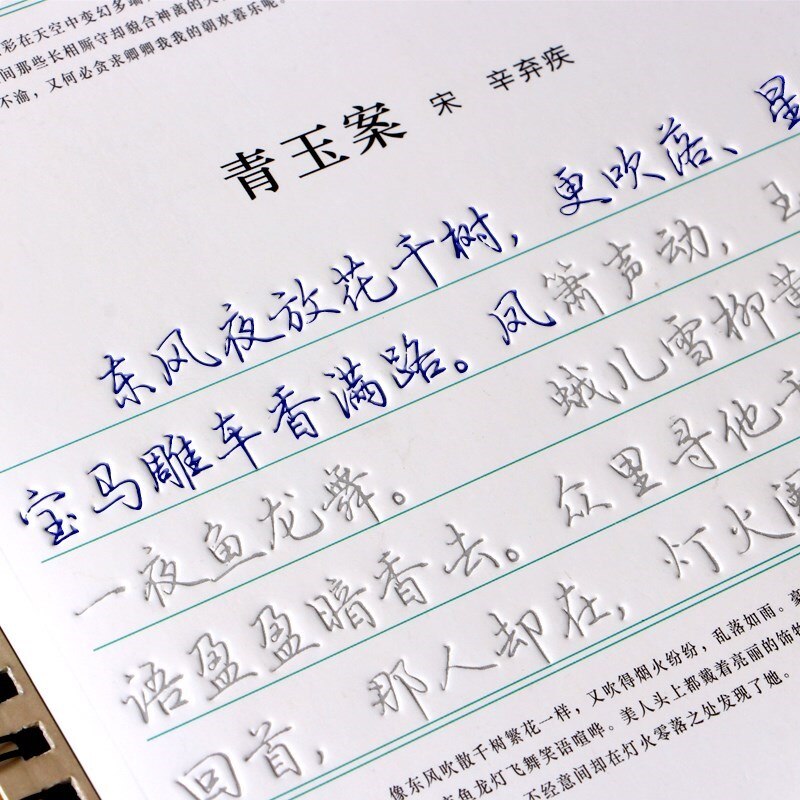 彩在天空中变幻多端
间那些长相厮守却貌合神离的
不渝，又何必贪求卿卿我我的朝欢暮乐呢。
青玉案 宋 辛弃疾
东风夜放花千树，更吹落、星
宝马雕车香满路。凤箫声动，玉
一夜鱼龙舞。 蛾儿雪柳黄
语盈盈暗香去。众里寻他千
回首，那人却在，灯火阑
像东风吹散千树繁花一样，又吹得烟火纷纷，乱落如雨。豪
鱼龙灯飞舞笑语喧哗。美人头上都戴着亮丽的饰物
不经意间却在灯火零落之处发现了她。